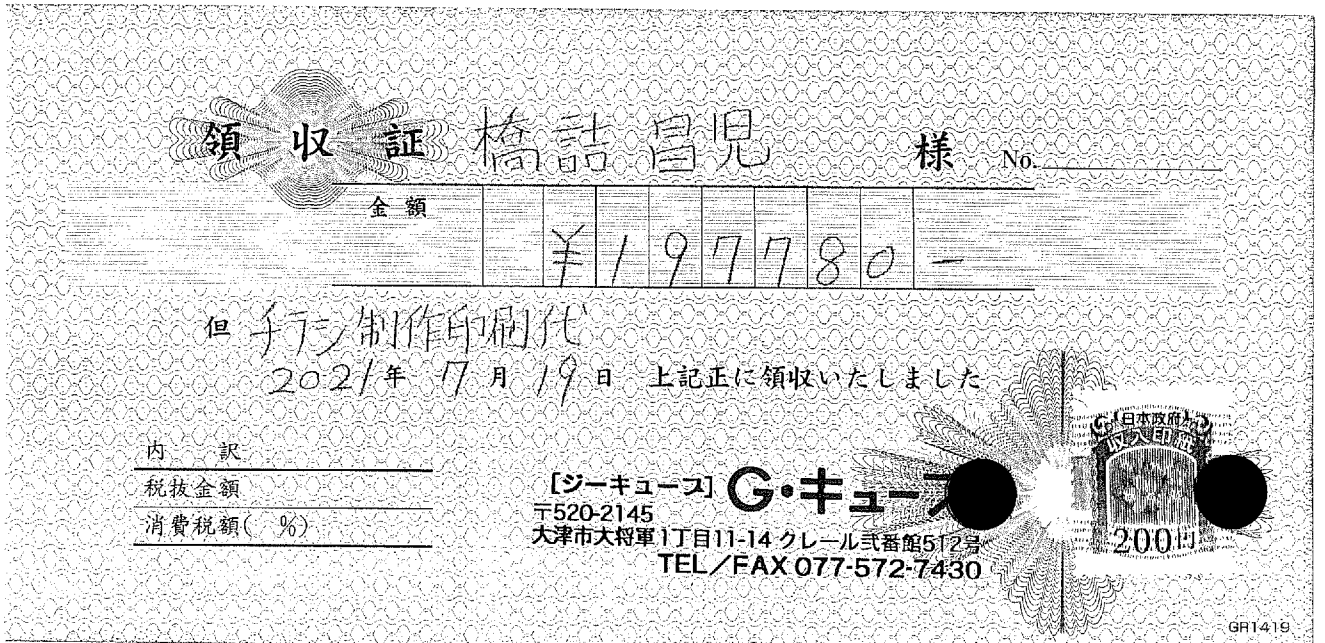 領収証 橋詰昌児 様 No.
金額 ¥197780-
但 チラシ制作印刷代
2021年 7月 19日 上記正に領収いたしました
内訳
税抜金額
消費税額( %)
[ジーキューブ] G・キュー
〒520-2145
大津市大将軍1丁目11-14 クレール弐番館512号
TEL/FAX 077-572-7430
日本政府
収入印紙
200円
GR1419